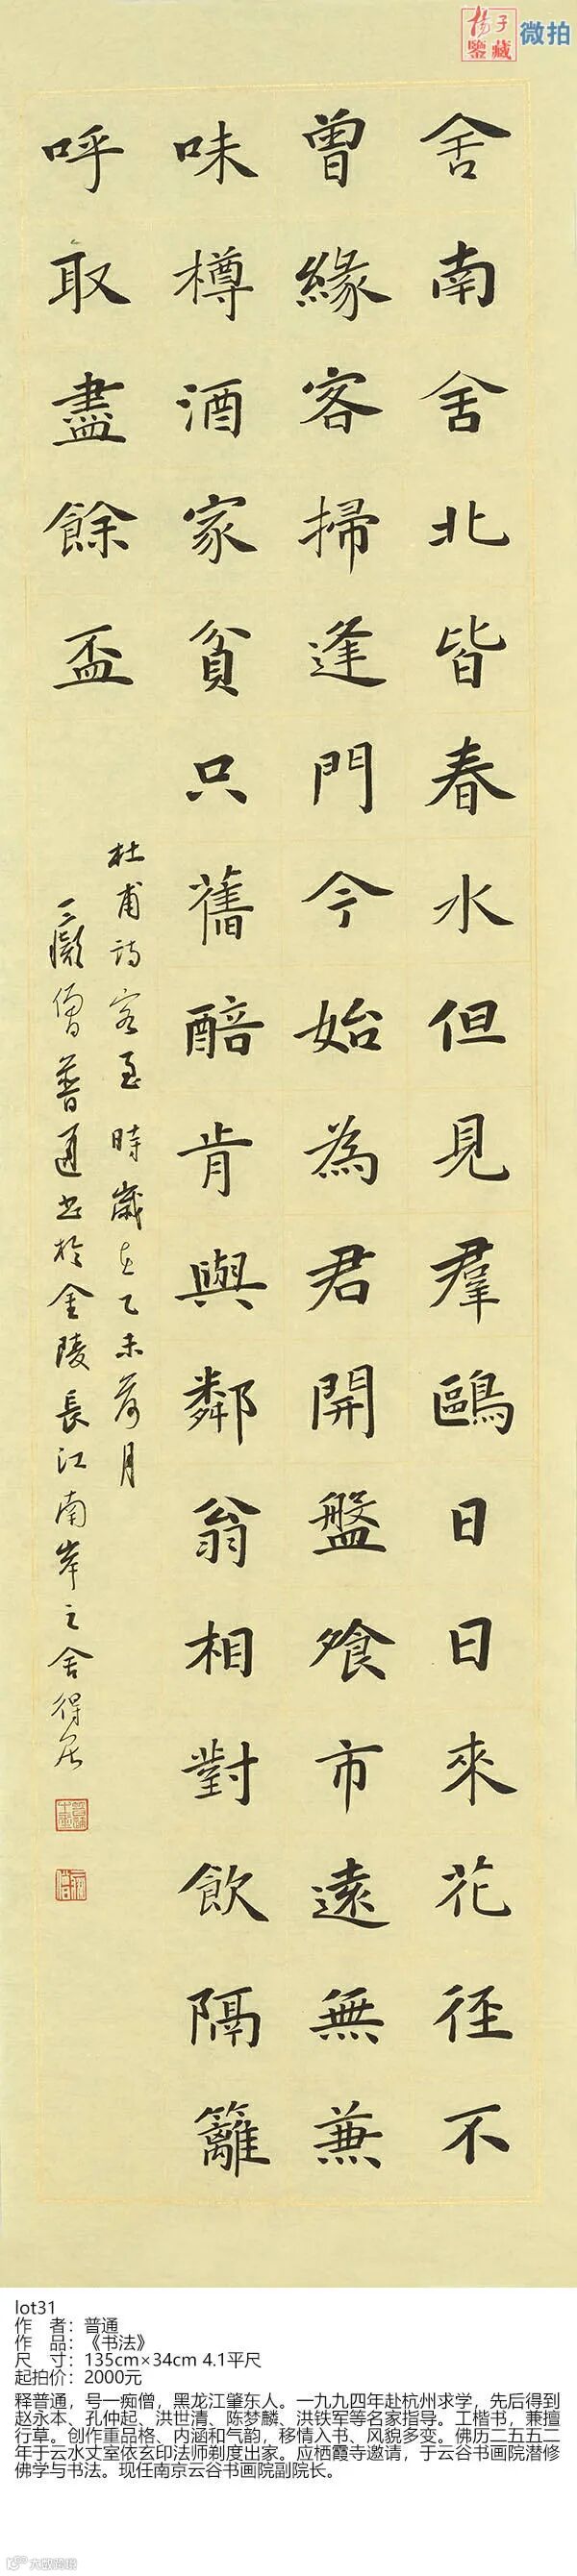 揚子
鑒藏
微拍
舍南舍北皆春水但見羣鷗日日來花径不
曾緣客掃逢門今始為君開盤飱市遠無兼
味樽酒家貧只舊醅肯與鄰翁相對飲隔籬
呼取盡餘盃
杜甫詩客至時歲在乙未荷月
一癡僧普通書於金陵長江南岸之舍得居
lot31
作 者：普通
作 品：《书法》
尺 寸：135cm×34cm 4.1平尺
起拍价：2000元
释普通，号一痴僧，黑龙江肇东人。一九九四年赴杭州求学，先后得到
赵永本、孔仲起、洪世清、陈梦麟、洪铁军等名家指导。工楷书，兼擅
行草。创作重品格、内涵和气韵，移情入书、风貌多变。佛历二五五二
年于云水丈室依玄印法师剃度出家。应栖霞寺邀请，于云谷书画院潜修
佛学与书法。现任南京云谷书画院副院长。